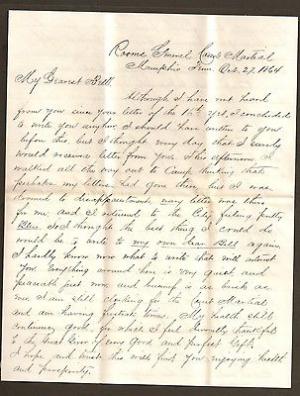 Rooms General Court Martial
Memphis Tenn. Oct. 27, 1864
My Dearest Bell.
Although I have not heard
from you since your letter of the I concluded
to write you anyhow. I should have written to you
before this, but I thought every day that I surely
would receive letter from you. This afternoon I
walked all the way out to Camp thinking that
perhaps my letters had gone there but I was
doomed to disappointment, nary letter was there
for me, and I returned to the City feeling pretty
Blue. So I thought the best thing I could do
would be to write to my own dear Bell again.
I hardly know now what to write that will interest
you. Everything around here is very quiet and
peaceable just now and business is as brisk as
ever. I am still clerking for the Court Martial
and am having first rate times. My health still
continues good, for which I feel devoutly thankful
to the Great Giver of every good and perfect Gift.
I hope and trust this will find you enjoying health
and prosperity.